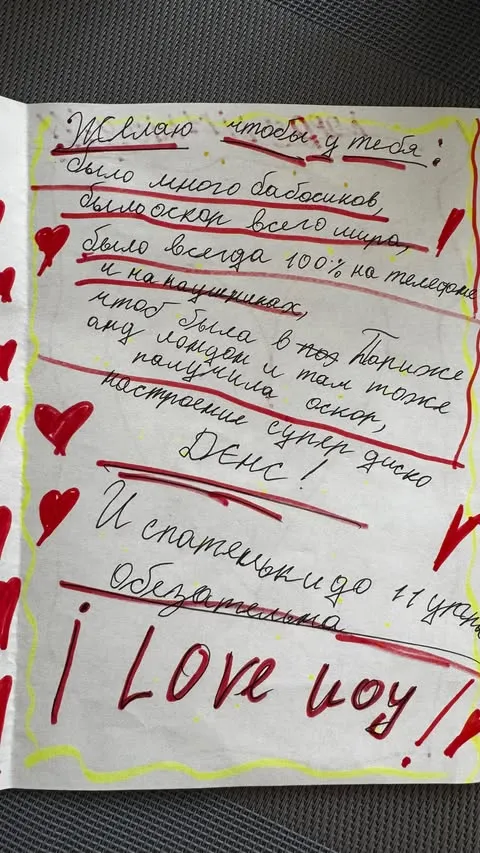 Желаю чтобы у тебя:
было много бабосиков,
было оскар всего мира,
было всегда 100% на телефоне
и на наушниках,
чтоб была в Париже
анд лондон и там тоже
палучила оскор,
настроение супер диско
ДЄНС!
И спатеньки до 11 утра
Обезательна
i Love иoy!